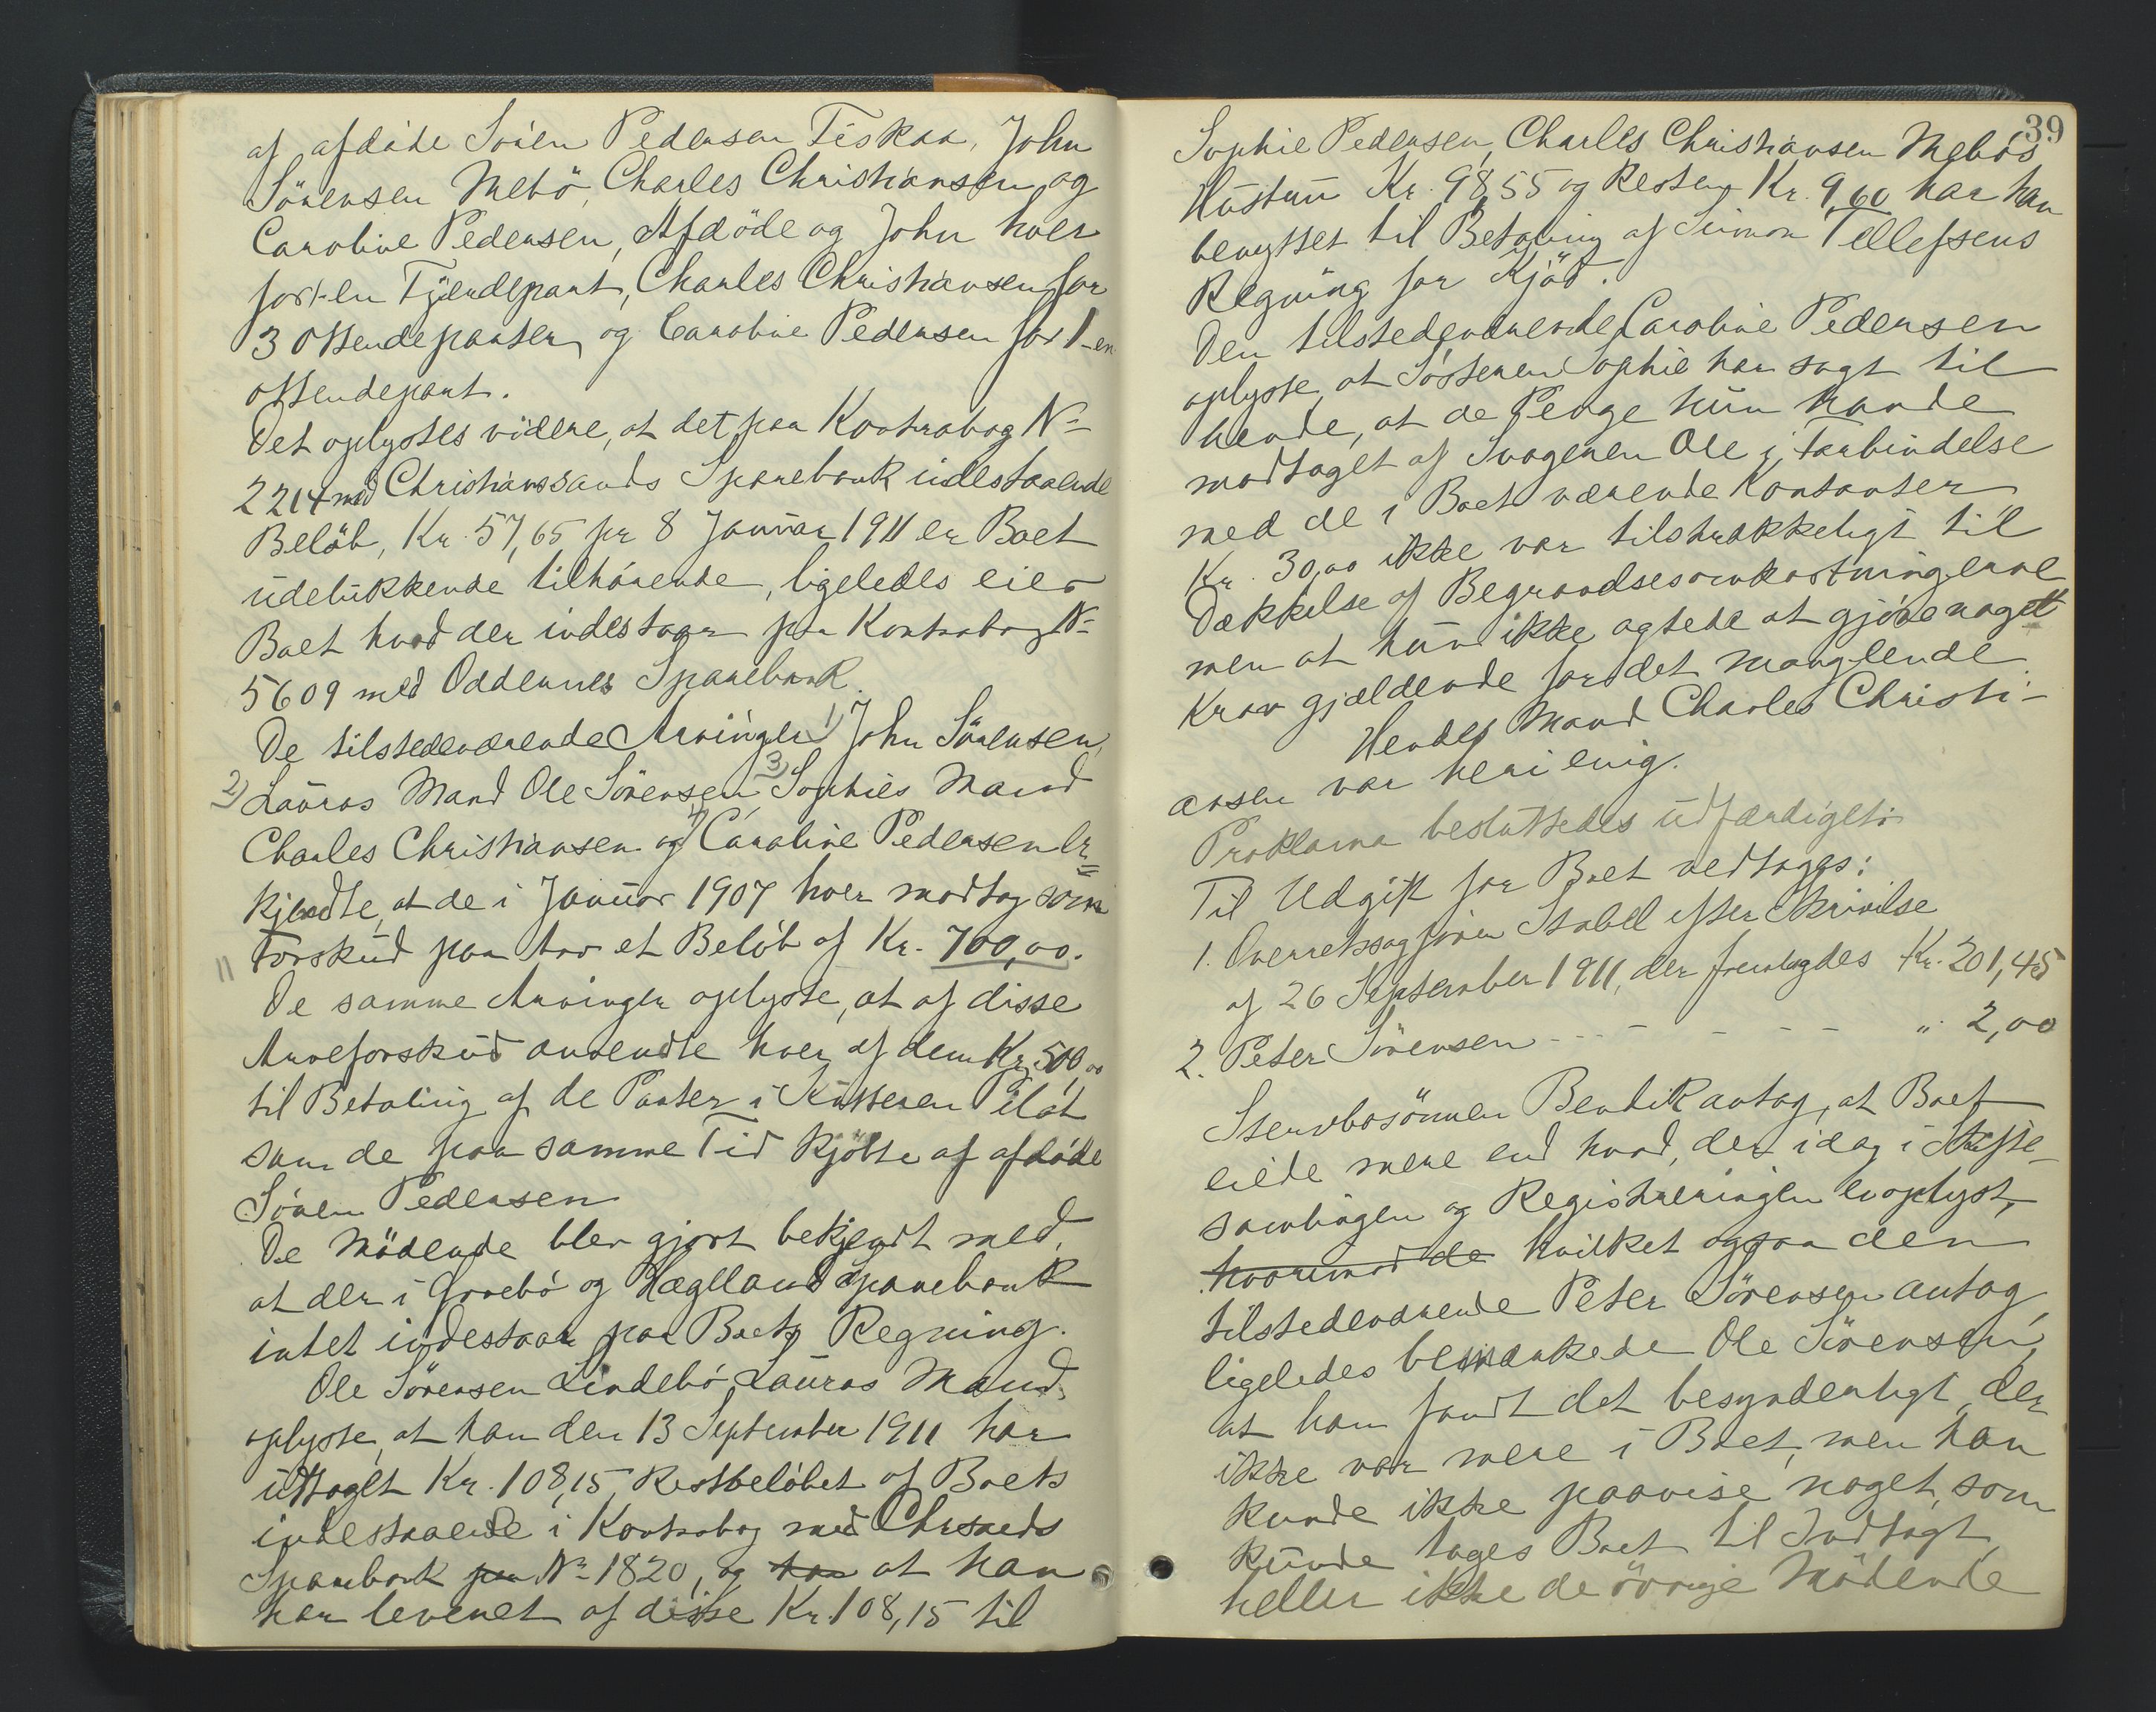 af afdöde Sören Pedersen Fiskaa, John
Sörensen Mebö, Charles Christiansen og
Caroline Pedersen, Afdöde og John hver
for 1-en Fjerdepart, Charles Christiansen for
3 ottendeparter og Caroline Pedersen for 1-en
ottendepart.
Det oplystes videre, at det paa Kontrabog No
2214 med Christianssands Sparebank indestaaende
Belöb, Kr. 57,65 pr 8 Januar 1911 er Boet
udelukkende tilhörende, ligeledes eier
Boet hvad der indestaar paa Kontrabog No
5609 med Oddernes Sparebank.
De tilstedeværende Arvinger 1) John Sörensen,
2) Lauras Mand Ole Sörensen, 3) Sophies Mand
Charles Christiansen og 4) Caroline Pedersen er=
kjendte, at de i Januar 1907 hver modtog som
Forskud paa Arv et Belöb af Kr. 700,00.
De samme Arvinger oplyste, at af disse
Arveforskud anvendte hver af dem Kr. 500,00
til Betaling af de Parter i Kutteren Pilot
som de paa samme Tid kjöbte af afdöde
Sören Pedersen
De Mödende blev gjort bekjendt med,
at der i Grovebö og Hægeland Sparebank
intet indestaar paa Boets Regning.
Ole Sörensen Lindebö, Lauras Mand,
oplyste, at han den 13 September 1911 har
uttaget Kr. 108,15, Restbelöbet af Boets
indestaaende i Kontrabog med Chrsands
Sparebank paa No 1820, og har at han
har leveret af disse Kr. 108,15 til
39
Sophie Pedersen, Charles Christiansen Mebös
Hustru Kr. 98,55 og Resten Kr. 9,60 har han
benyttet til Betaling af Simon Tellefsens
Regning for Kjöd.
Den tilstedeværende Caroline Pedersen
oplyste, at Sösteren Sophie har sagt til
hende, at de Penge hun havde
modtaget af Svogeren Ole i Forbindelse
med de i Boet værende Kontanter
Kr. 30,00 ikke var tilstrækkeligt til
Dækkelse af Begravelsesomkostningerne
men at hun ikke agtede at gjöre noget
Krav gjældende for det manglende.
Hendes Mand Charles Christi-
ansen var heri enig.
Proklama besluttedes udfærdiget.
Til Udgift for Boet vedtages:
1. Overretssagförer Stabel efter Skrivelse
af 26 September 1911, der fremlagdes Kr. 201,45
2. Peter Sörensen - - - - - - - " 2,00
Stervbosönnen Bendik antog, at Boet
eiede mere end hvad, der idag i Skifte-
samlingen og Registreringen er oplyst,
hvorimod de hvilket ogsaa den
tilstedeværende Peter Sörensen antog,
ligeledes bemærkede Ole Sörensen,
at han fandt det besynderligt, der
ikke var mere i Boet, men han
kunde ikke paavise noget, som
kunde tages Boet til Indtægt,
heller ikke de övrige Mödende